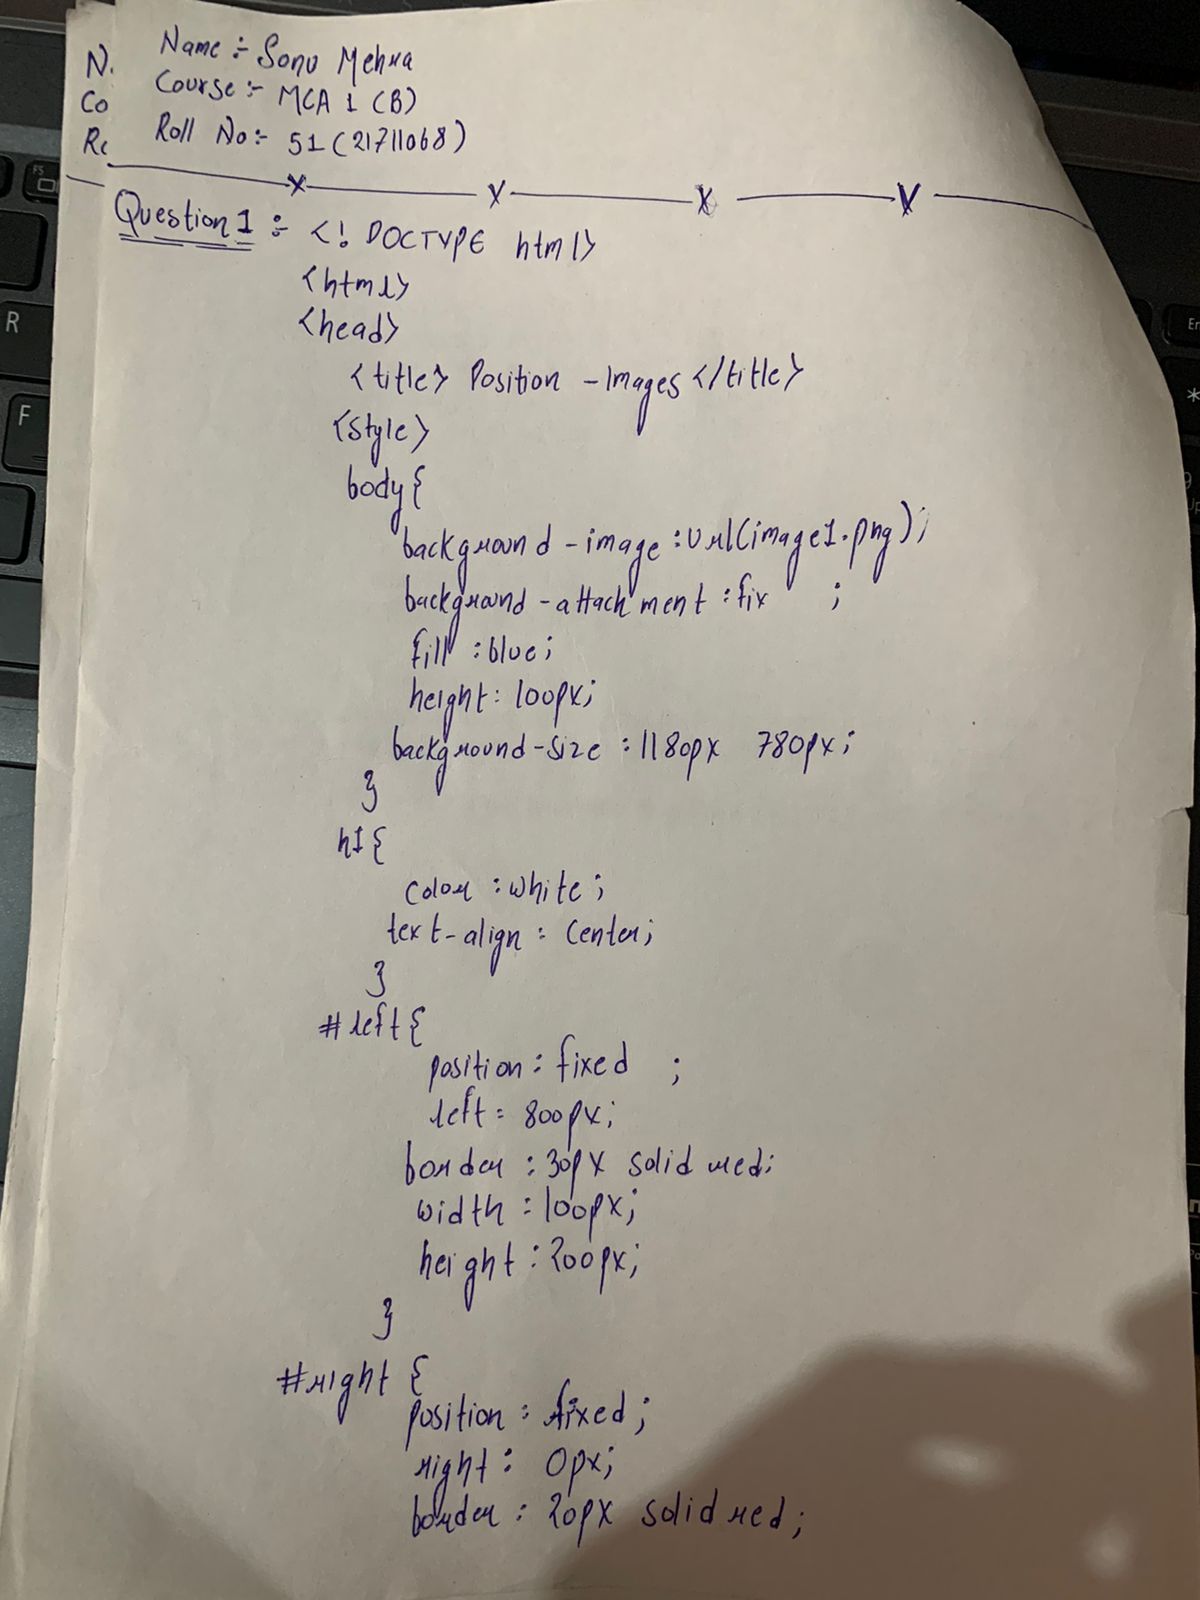 N. Name :- Sonu Mehra
Co Course :- MCA 1 (B)
Ro Roll No :- 51 (21711068)
Question 1 :- <! DOCTYPE html>
<html>
<head>
<title> Position - Images </title>
<style>
body {
background-image : url(image1.png);
background-attachment : fix ;
fill : blue;
height : 100px;
background-size : 1180px 780px;
}
h1 {
color : white ;
text-align : center;
}
# left {
position : fixed ;
left : 800px;
border : 30px solid red;
width : 100px;
height : 200px;
}
#right {
position : fixed ;
right : 0px;
border : 20px solid red ;